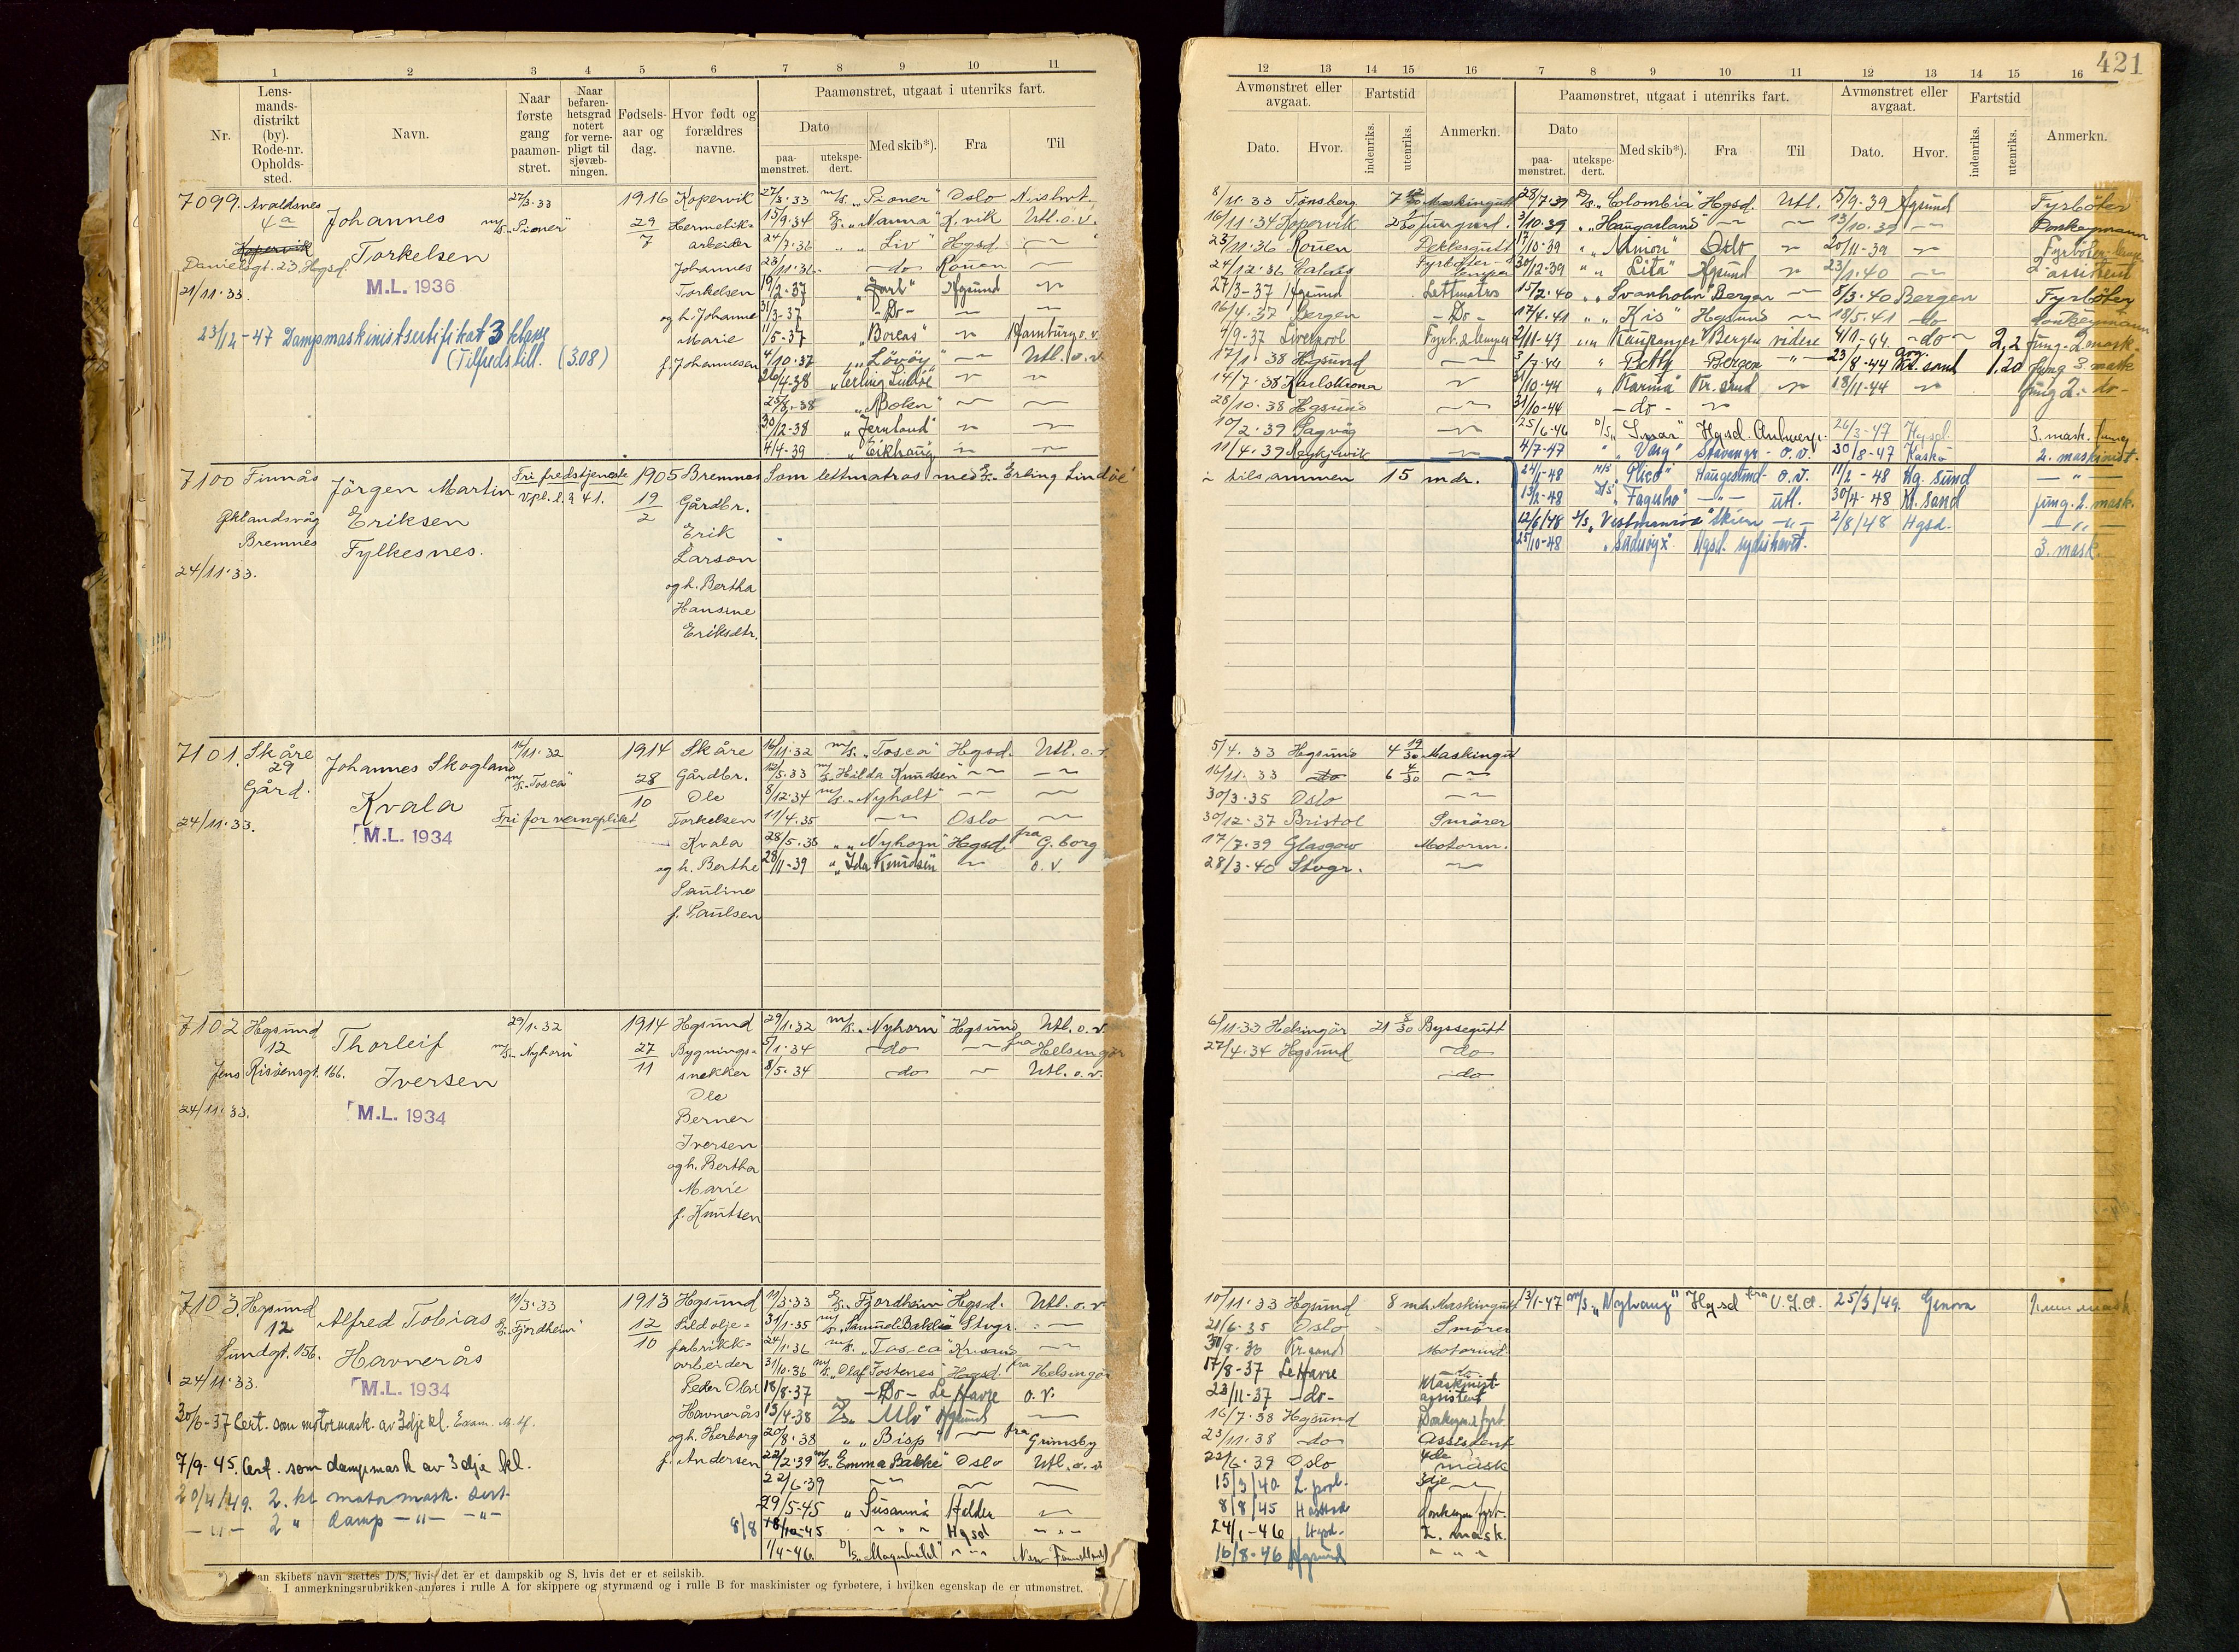 421
1 2 3 4 5 6 7 8 9 10 11
Nr.
Lensmandsdistrikt (by). Rode-nr. Opholdssted.
Navn.
Naar første gang paamønstret.
Naar befarenhetsgrad notert for vernepligt til sjøvæbningen.
Fødselsaar og dag.
Hvor født og forældres navne.
Paamønstret, utgaat i utenriks fart.
Dato
paamønstret.
utekspedert.
Med skib*).
Fra
Til
12 13 14 15 16 7 8 9 10 11 12 13 14 15 16
Avmønstret eller avgaat.
Fartstid
Dato.
Hvor.
indenriks.
utenriks.
Anmerkn.
Paamønstret, utgaat i utenriks fart.
Dato
paamønstret.
utekspedert.
Med skib*).
Fra
Til
Avmønstret eller avgaat.
Dato.
Hvor.
Fartstid
indenriks.
utenriks.
Anmerkn.
7099. Avaldsnes
4a
Kopervik
Danielsgt. 23, Hgsd.
21/11.33.
Johannes
Torkelsen
M.L. 1936
23/12-47 Dampmaskinistsertifikat 3 klasse
(Tilfredstill. (308)
27/3.33
m/s. "Pioner"
1916
29
7
Kopervik
Hermetik-
arbeider
Johannes
Torkelsen
og h. Johanne
Marie
f. Johannesen
27/3.33 m/s. "Pioner" Oslo
15/9.34 "Nanna" K.vik Utl.o.v.
24/7.36 " "Liv" Hgsd.
23/11.36 do Rouen
19/2-37 "Jarl" Hgsund
31/3-37 - Do -
11/5-37 "Boreas" Hamburg o.v.
4/10.37 "Lövöy" Utl. o.v
26/4-38 "Erling Lindöe"
25/8.38 "Bolen"
30/12-38 "Jernland"
4/4-39 "Eikhaug"
8/11.33 Tönsberg Maskingutt
16/11.34 Kopervik
23/11.36 Rouen Dekksgutt
24/12.36 Calais
27/3-37 Hgsund Lettmatros
16/4.37 Bergen - Do -
4/9-37 Liverpool Fyrb. & lemper
17/1.38 Hgsund
14/7.38 Karlskrona
28/10.38 Hgsund
10/2.39 Sagvåg
11/4.39 Reykjavik
28/7.39 D/s. "Colombia" Hgsd. Utl. 5/9.39 Hgsund Fyrböter
3/10.39 " "Haugarland" 13/10.39 Donkeymann
17/10.39 " "Mimona" Oslo 20/11-39
30/12-39 " "Lita" Hgsund 23/1.40 assistent
15/2.40 " "Svanholm" Bergen 8/3.40 Bergen Fyrböter
17/4.41 " "Kis" Hgsund 18/5.41 do Donkeymann
2/11-43 " "Kaupanger" Bergen videre 4/1.44. - do - 2,2 fung. 2 mask.
3/7-44 " "Betty" Bergen 23/8-44 Kr.sand 1,20 fung 3. mask
31/10-44 "Karma" Kr.sand 18/11-44 fung 2. - do -
31/10-44 - do -
25/6-46 D/s. Hgsd. Antwerp. 26/3-47 Hgsd. 3. mask.
4/7-47 " "Varg" Stavanger - o.v. 30/8-47 Kaskö 2. maskinist.
24/1-48 "Pico" Haugesund - o.v. 11/2-48 Hg.sund
13/2-48 "Fagersbro" utl. 30/4-48 Kr.sand fung. 2. mask.
12/6/48 "Vestmanröd" Skien 2/8/48 Hgsd.
25/10-48 Hgsd. sydishavet. 3. mask.
7100 Finnås
Öklandsvåg
Bremnes
24/11.33.
Jörgen Martin
Eriksen
Fylkesnes.
Fri fredstjeneste
Vpl. l. § 41.
1905
19
2
Bremnes
Gårdbr.
Erik
Larson
og h. Bertha
Hansine
Eriksdtr.
Som lettmatros med D/s. "Erling Lindöe"
tilsammen 15 mdr.
7101. Skåre
29
Gård.
24/11.33.
Johannes Skogland
Kvala
M.L. 1934
16/11.32
m/s. "Tosca"
Fri for verneplikt
1914
28
10
Skåre
Gårdbr.
Ole
Torkelsen
Kvala
og h. Berthe
Pauline
f. Paulsen
16/11.32 m/s. "Tosca" Hgsd. Utl. o.v
12/5.33 m/s. "Hilda Knudsen"
8/12.34 m/s. "Nyholt"
11/4.35 Oslo
28/5.35 " "Nyhorn" Hgsd. fra G.borg
28/11-39 " "Ida Knudsen" o.v.
5/4.33 Hgsund 4 19/30 Maskingutt
16/11.33 do 6 4/30
30/3.35 Oslo
30/12-37 Bristol Smörer
17/7.39 Glasgow Motorm.
28/3-40 Stvgr.
7102 Hgsund
12
Jens Risöensgt. 166.
24/11.33.
Thorleif
Iversen
M.L. 1934
29/1.32
m/s. "Nyhorn"
1914
27
11
Hgsund
Bygnings-
snekker
Ole
Berner
Iversen
og h. Bertha
Marie
f. Knutsen
29/1.32 m/s. "Nyhorn" Hgsund Utl. o.v.
5/1.34 do fra Helsingör
8/5.34 do Utl. o.v.
6/11.33 Helsingör 21 8/30 Byssegutt
27/4.34 Hgsund do
do
7103. Hgsund
12
Sundgt. 156.
24/11.33.
Alfred Tobias
Havnerås
M.L. 1934
30/6-37 Cert. som motormask. av 3dje kl.
7/9-45. Cert. som dampmask av 3dje kl.
20/4/49. 2. kl motormask. sert.
-"- 2 " damp -"- -"-
11/3.33
D/s. "Fjordheim"
1913
12
10
Hgsund
Sildolje-
fabrikk-
arbeider
Peder Olai
Havnerås
og h. Herborg
f. Andersen
11/3.33 D/s. "Fjordheim" Hgsd. Utl. o.v
31/1.35 m/s. "Samuel Bakke" Stvgr.
24/1.36 m/s. "Tosca" Kr.sand
31/10.36 m/s. "Olaf Fostenes" Hgsd. fra Helsingör
18/8-37 - Do - Le Havre o.v.
13/4-38 D/s. "Ulv" Hgsund
20/8.38 " "Bisp" fra Grimsby
22/2.39 m/s. "Emma Bakke" Oslo Utl. o.v
22/6.39
29/5-45 " Susanna
8/8 18/10-45 Hgsd
1/4-46. D/s. "Magnhild"
10/11.33 Hgsund 8 mdr. Maskingutt
21/6.35 Oslo Smörer
31/8.36 Kr.sand Motormd.
17/8-37 Le Havre do
23/11-37 - do - Maskinist-
assistent
16/7.38 Hgsund Donkeym & fyrb.
23/11.38 do Assistent
22/6.39 Oslo 4de mask
15/3/40 L.pool. 3dje
8/8/45 Harstad donkeym fyrb.
24/1-46 Hgsd. 2. mask.
16/8-46 Hgsund
13/1-47 m/s. "Nylvang" Hgsd fra U.S.A. 25/3/49. Genova
*) Foran skibets navn sættes D/S, hvis det er et dampskib og S, hvis det er et seilskib.
I anmerkningsrubrikken anføres i rulle A for skippere og styrmænd og i rulle B for maskinister og fyrbøtere, i hvilken egenskap de er utmønstret.